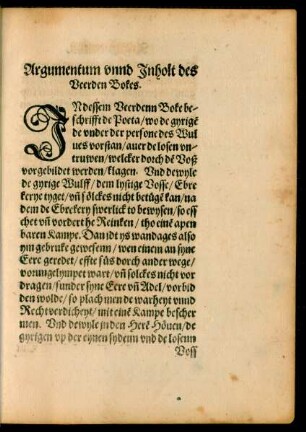 Argumentum vnnd Jnholt des
Veerden Bokes.
JN dessem Veerdenn Boke be-
schrifft de Poeta / wo de gyrigē
de vnder der persone des Wul
ues vorstan / auer de losen vn-
truwen / welcker dorch dē Voß
vorgebildet werden / klagen. Vnd dewyle
de gyrige Wulff / dem lystige Vosse / Ebre
kerye tyget / vñ sölckes nicht betügē kan / na
dem de Ebrekery swerlick to bewysen / so es
schet vñ vordert he Reinken / tho einē apen
baren Kampe. Dan dit ys wandages also
ym gebruke gewesenn / wen einem an syne
Eere geredet / effte süs dorch ander wege /
vonngelympet wart / vñ solckes nicht vor
dragen / sunder syne Eere vñ Adel / vorbid
den wolde / so plach men de warheyt vnnd
Rechtverdicheyt / mit einē Kampe bescher
men. Vnd dewyle jn den Herē Höuen / de
gyrigen vp der eynen sydenn vnd de losenn
Voss